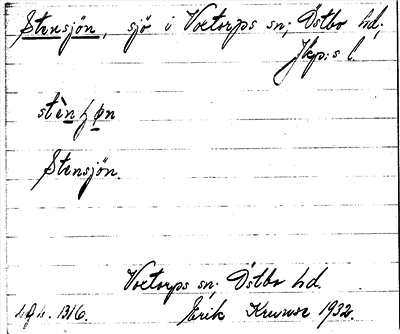 Stensjön, sjö i Voxtorps sn; Östbo hd;
Jkp:s l.
stè̱nʃø̱n
Stensjön.
Voxtorps sn; Östbo hd.
1316.
Erik 1932.